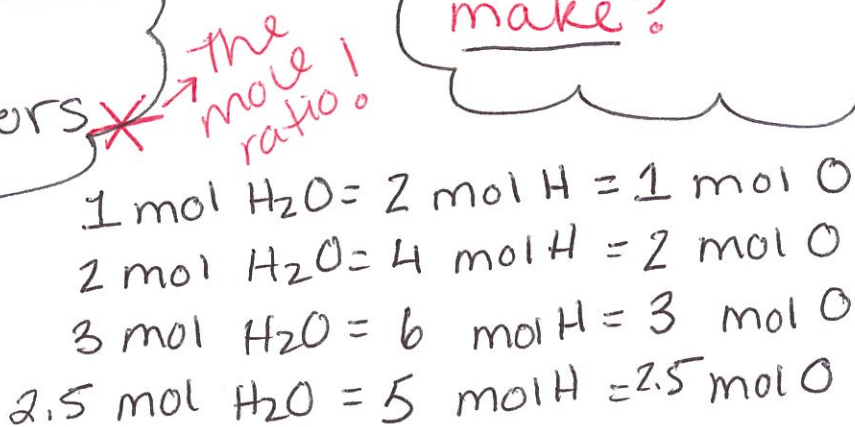 make?
the
mole
ratio!
ers
1 mol H₂O = 2 mol H = 1 mol O
2 mol H₂O = 4 mol H = 2 mol O
3 mol H₂O = 6 mol H = 3 mol O
2.5 mol H₂O = 5 mol H = 2.5 mol O